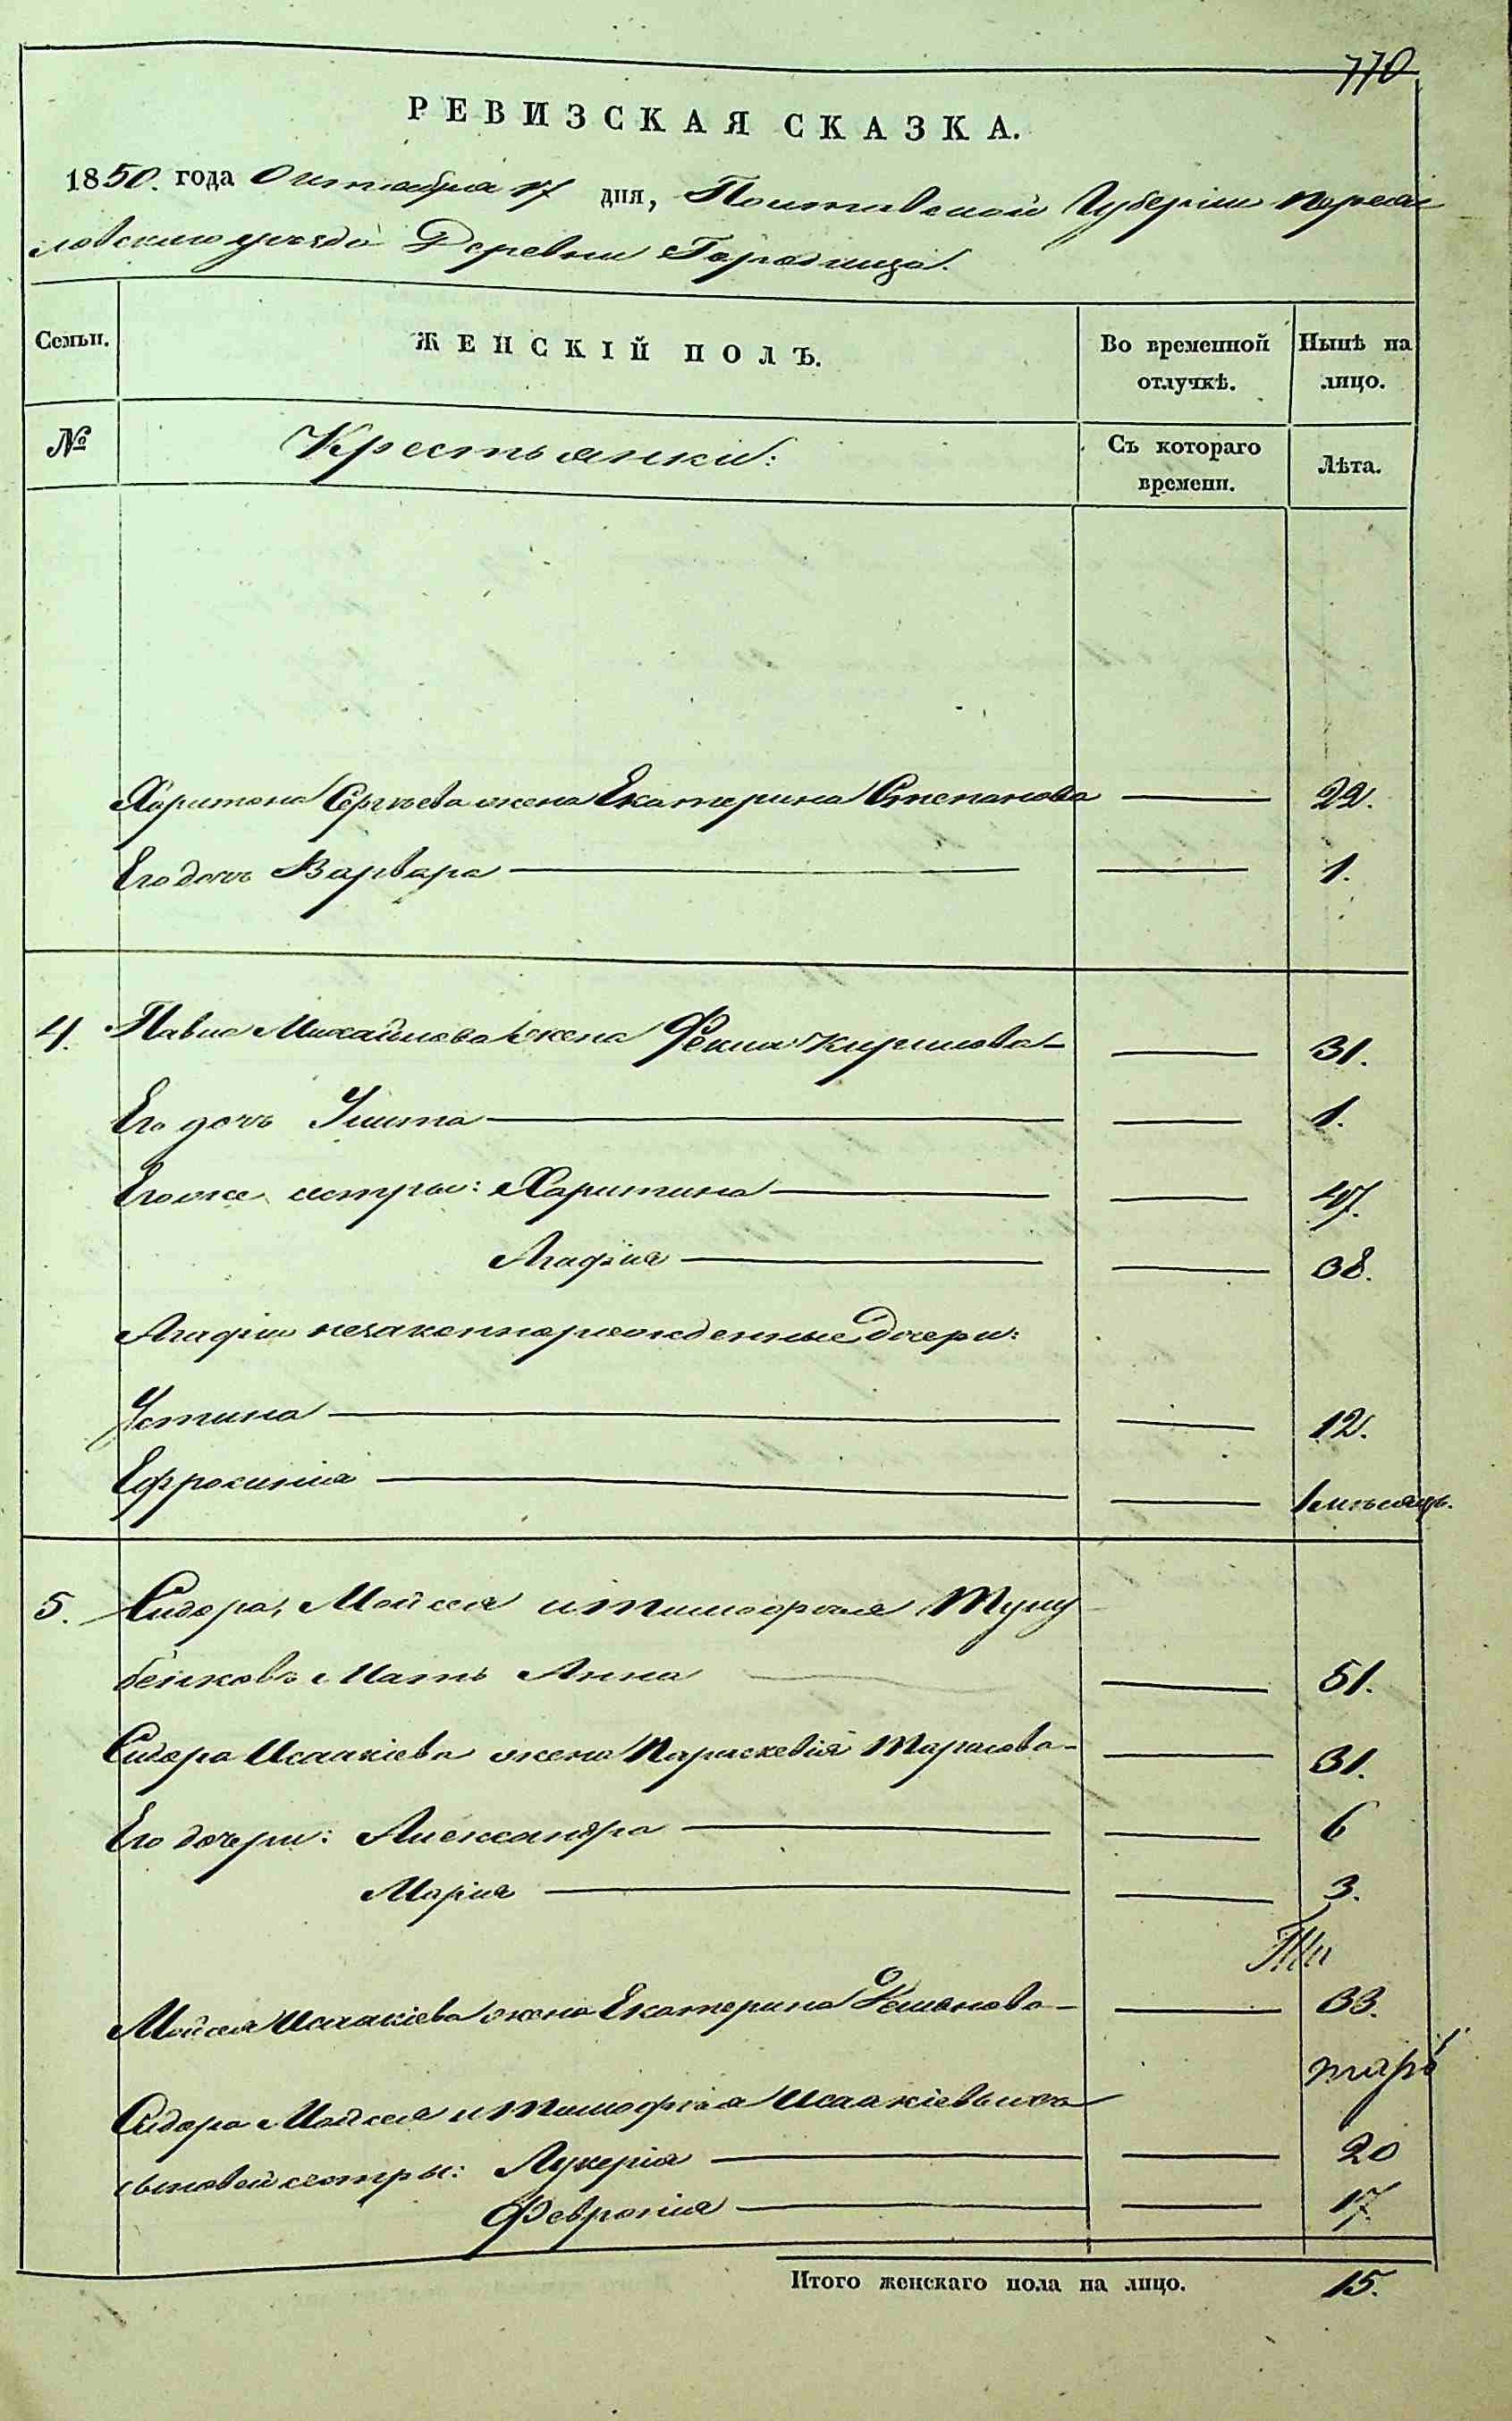 770
РЕВИЗСКАЯ СКАЗКА.
1850. года Октября 17 дня, Полтавской Губерніи Переяс
ловскаго уезда Деревни Горошица.
Семьи. ЖЕНСКІЙ ПОЛЪ. Во временной отлучкѣ. Нынѣ на лицо.
№ Крестьянки: Съ котораго времени. Лѣта.
Харитона Сергѣева жена Екатерина Степанова 22.
Его дочь Варвара 1.
4. Павла Михайлова жена Фекла Кирилова 31.
Его дочь Улита 1.
Его же сестры: Харитина 47.
Агафія 38.
Агафіи незаконнорожденные дочери:
Устина 12.
Ефросинія 1 мѣсяцъ.
5. Сидора, Мойсея и Тимофѣя Тулу
бенковъ Мать Анна 51.
Сидора Исаакіева жена Параскевія Тарасова 31.
Его дочери: Александра 6
Марія 3.
Мойсея Исаакіева жена Екатерина Демянова 33.
Сидора Мойсея и Тимофѣя Исаакіевыхъ
сыновей сестры: Лукерія 20
Февронія 17.
Итого женскаго пола на лицо. 15.